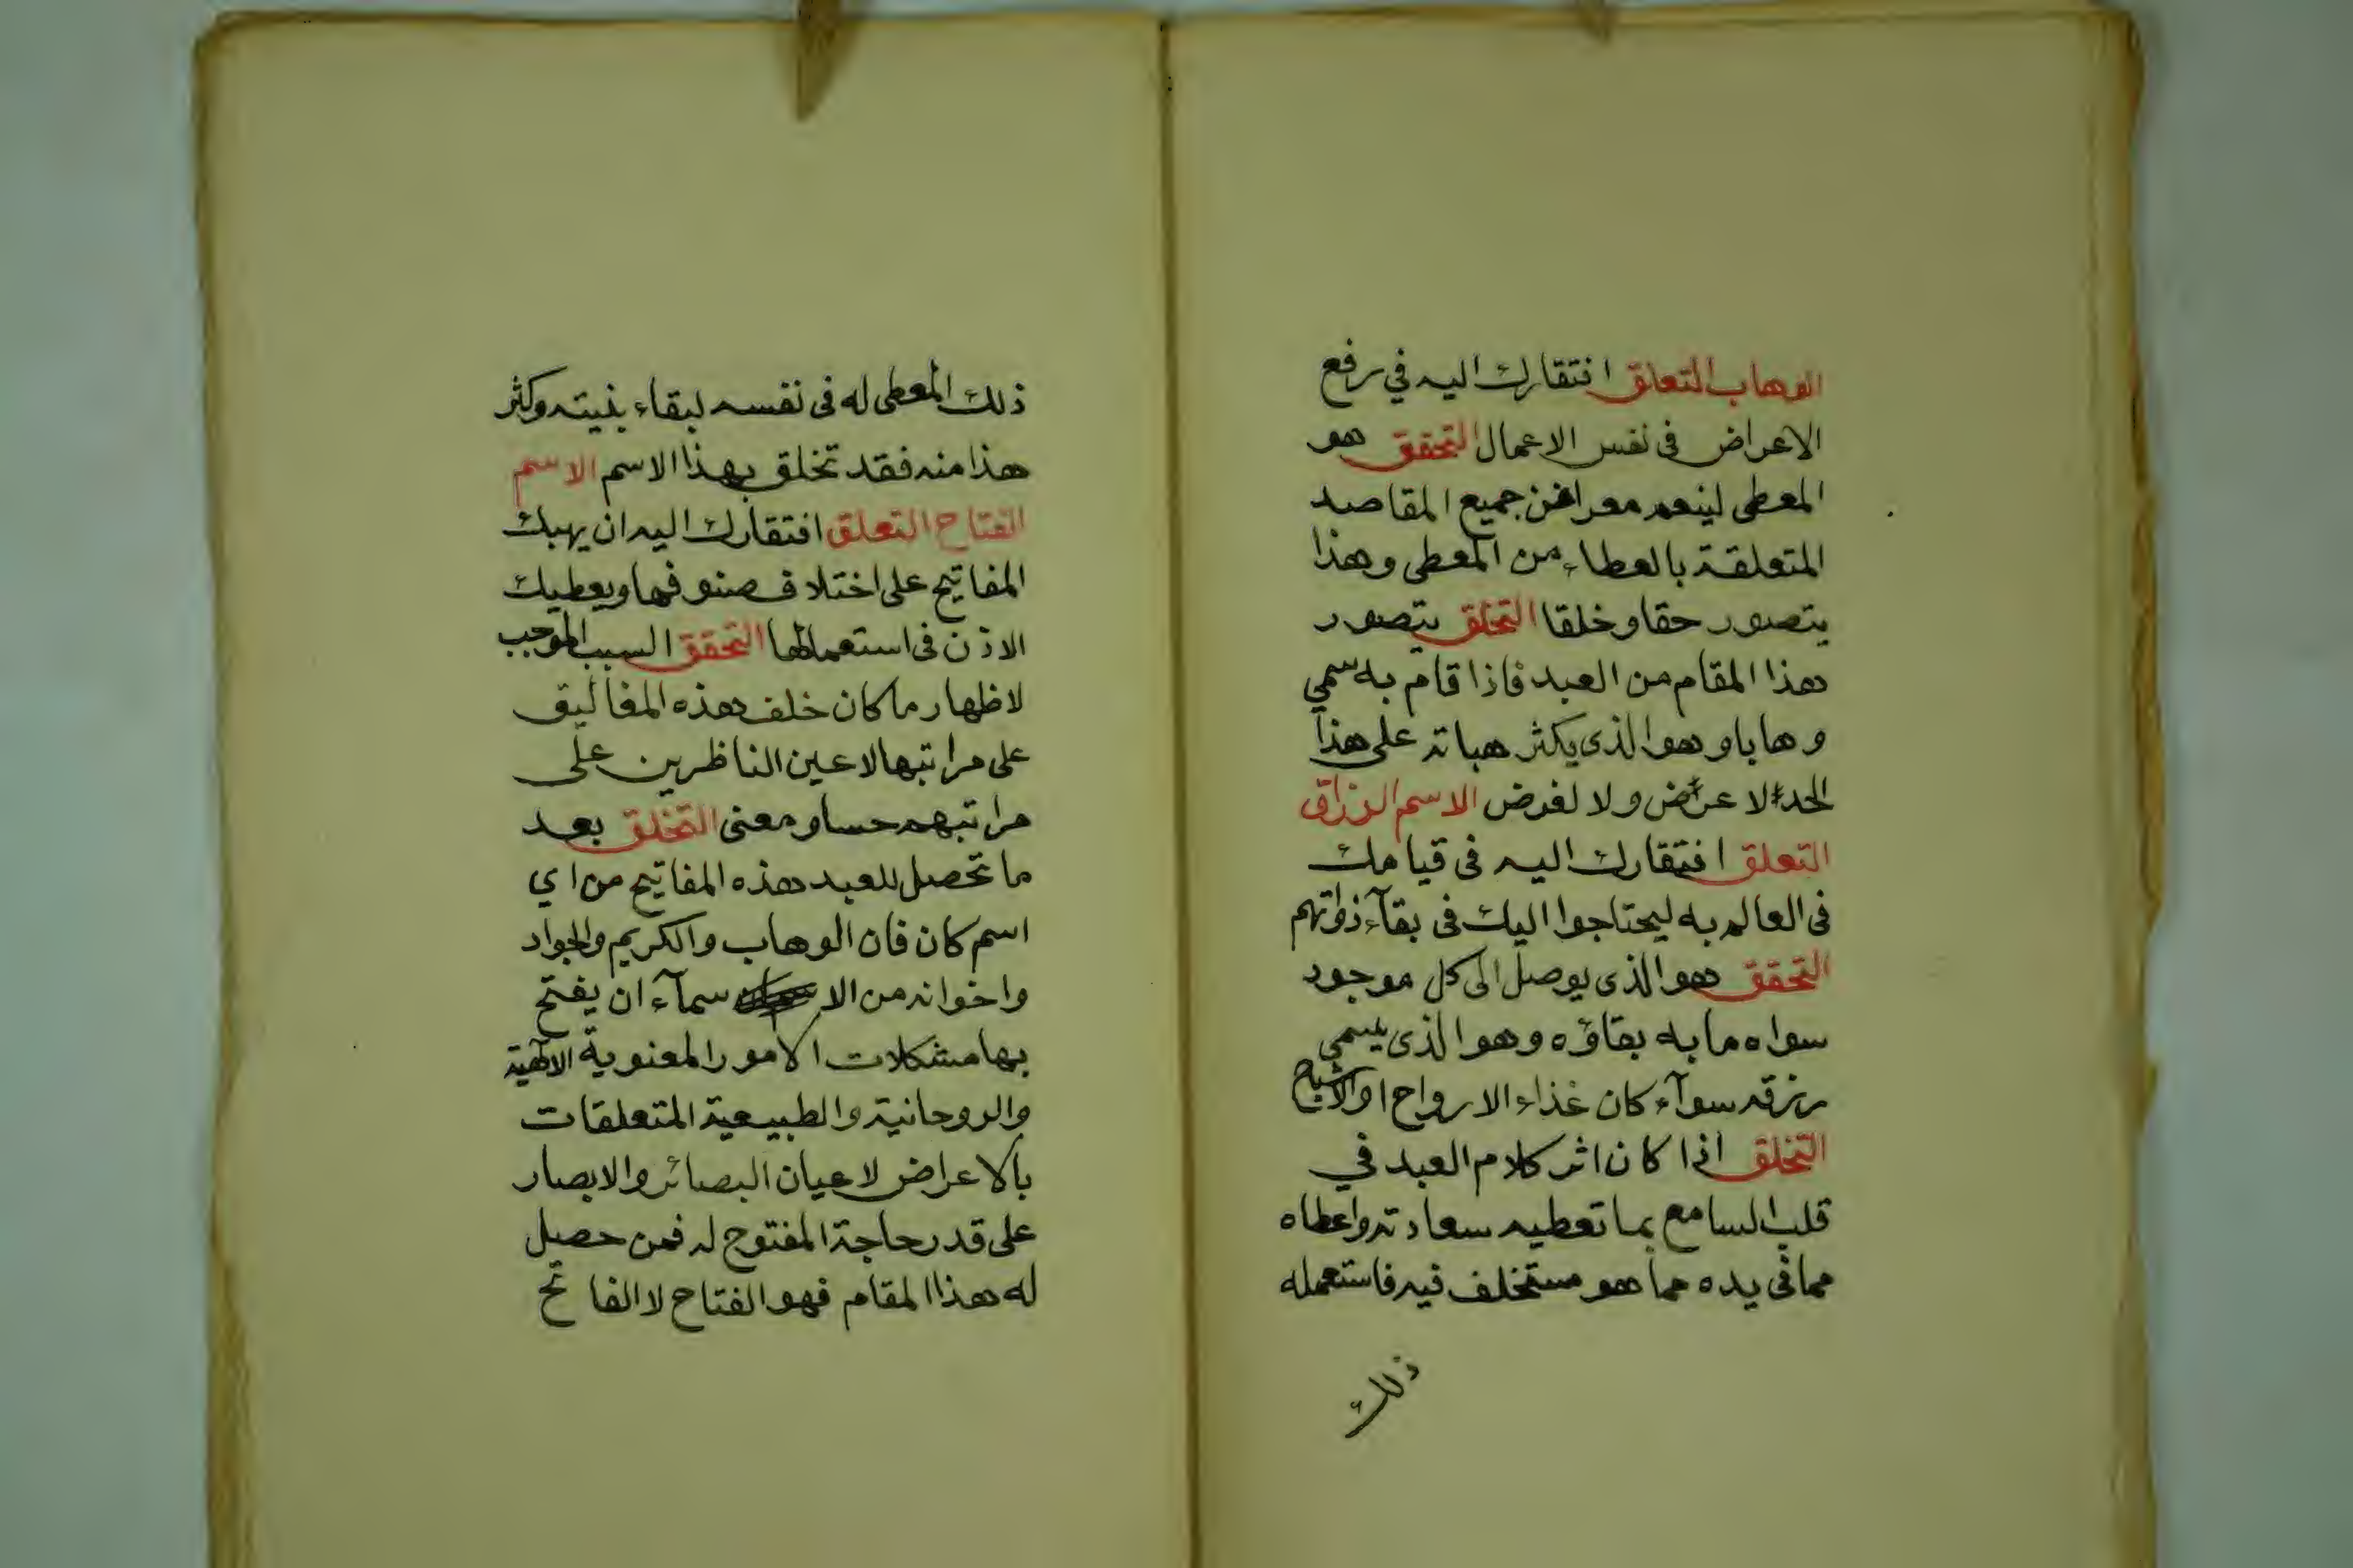 الوهاب التعلق افتقارك اليه في رفع
الاعراض فى نفس الاعمال التحقق هو
المعطى لينعم معرا عن جميع المقاصد
المتعلقة بالعطاء من المعطى وهذا
يتصور حقا وخلقا التخلق يتصور
هذا المقام من العبد فاذا قام به سمي
وهابا وهو الذى يكثر هباته على هذا
الحد لا عوض ولا لغرض الاسم الرزاق
التعلق افتقارك اليه فى قيامك
فى العالم به ليحتاجوا اليك فى بقآء ذواتهم
التحقق هو الذى يوصل الى كل موجود
سواه ما به بقاؤه وهو الذى يسمى
رزقه سوآء كان غذاء الارواح او الاشباح
التخلق اذا كان اثر كلام العبد في
قلب السامع بما تعطيه سعادته واعطاه
مما فى يده مما هو مستخلف فيه فاستعمله
ذلك
ذلك المعطى له فى نفسه لبقاء بنيته وكثر
هذا منه فقد تخلق بهذا الاسم الاسم
الفتاح التعلق افتقارك اليه ان يهبك
المفاتيح على اختلاف صنوفها ويعطيك
الاذن فى استعمالها التحقق السبب الموجب
لاظهار ما كان خلف هذه المغاليق
على مراتبها لاعين الناظرين على
مراتبهم حسا ومعنى التخلق بعد
ما تحصل للعبد هذه المفاتيح من اي
اسم كان فان الوهاب والكريم والجواد
واخوانه من الا سمآء ان يفتح
بها مشكلات الامور المعنوية الالهية
والروحانية والطبيعية المتعلقات
بالاعراض لاعيان البصائر والابصار
على قدر حاجة المفتوح له فمن حصل
له هذا المقام فهو الفتاح لا الفاتح